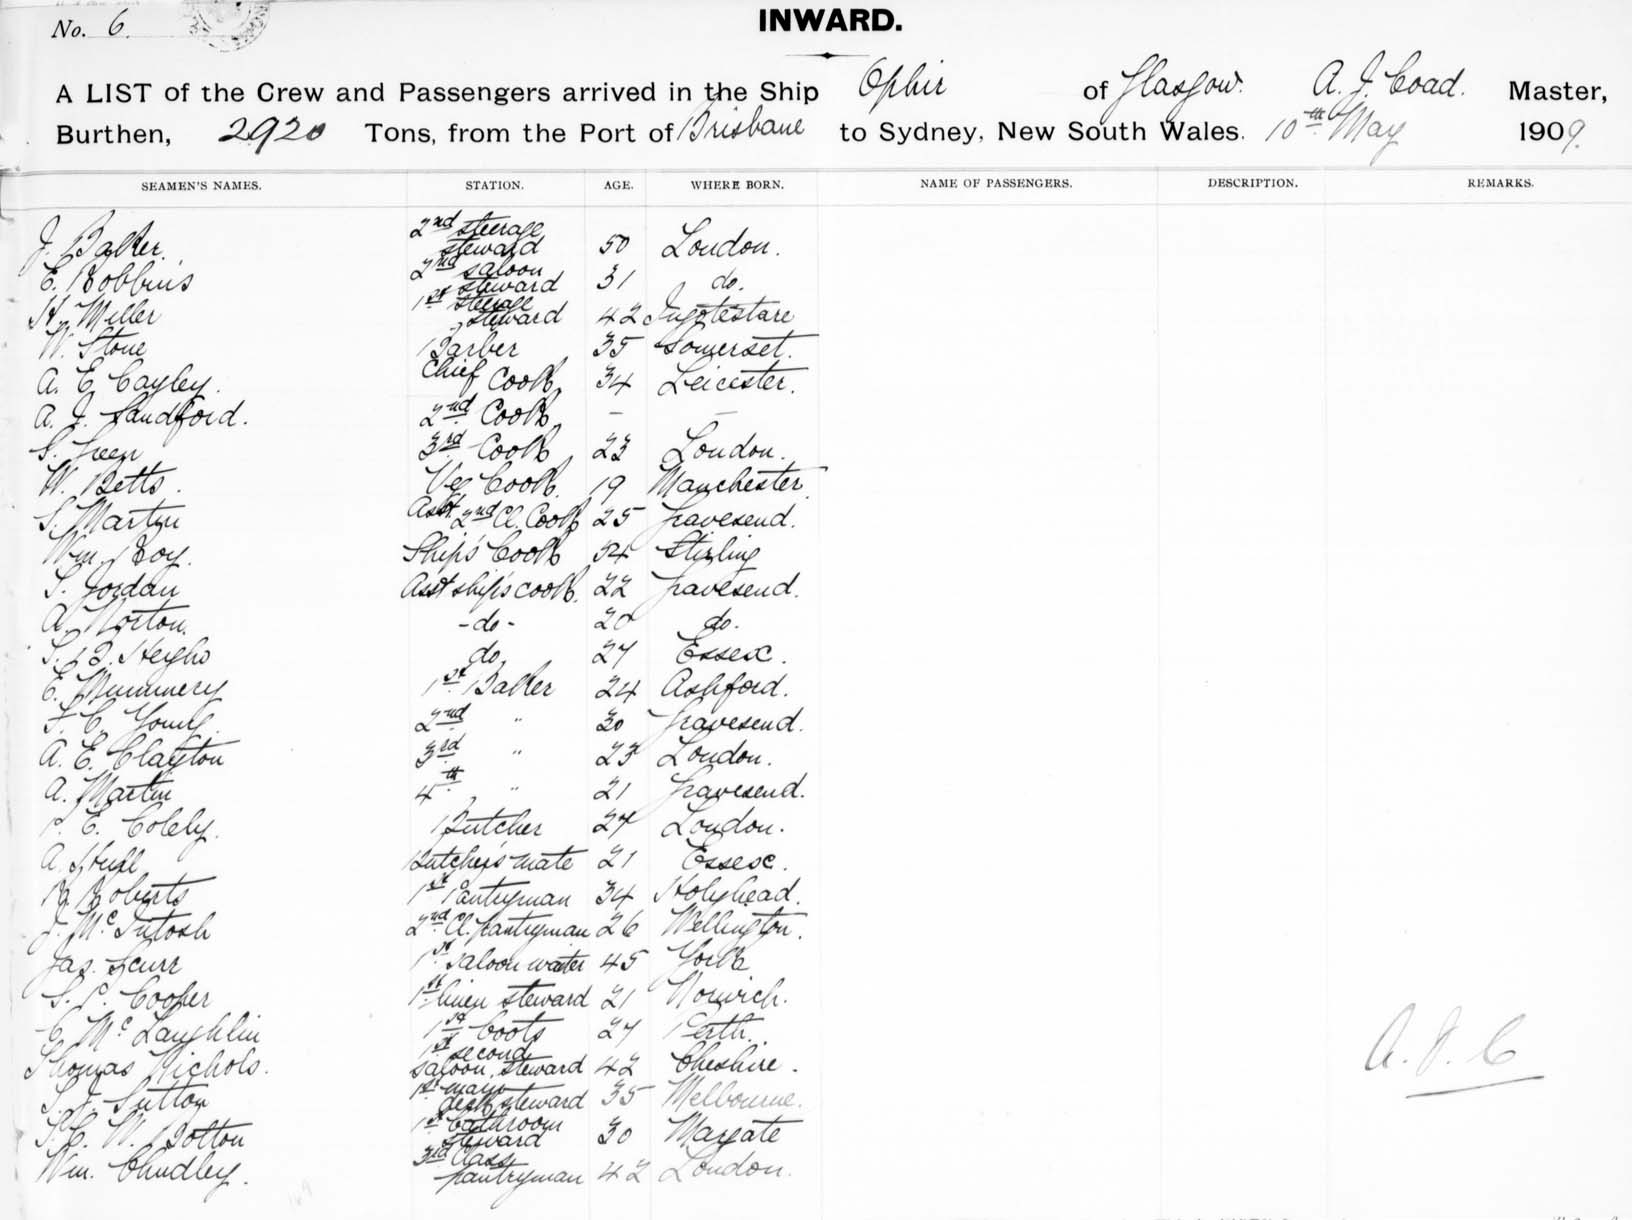 No. 6.
INWARD.
A LIST of the Crew and Passengers arrived in the Ship Ophir of Glasgow. A. J. Coad. Master,
Burthen, 2920 Tons, from the Port of Brisbane to Sydney, New South Wales. 10th May 1909.
SEAMEN'S NAMES. STATION. AGE. WHERE BORN. NAME OF PASSENGERS. DESCRIPTION. REMARKS.
J. Baker. 2nd steerage steward 50 London.
E. Robbins 2nd saloon steward 31 do.
H. Miller 1st steerage steward 42
W. Stone Barber 35 Somerset.
A. E. Cayley. Chief Cook 34 Leicester.
A. J. Sandford. 2nd Cook – –
S. Green 3rd Cook 23 London.
W. Betts. Veg Cook. 19 Manchester.
S. Martyn Asst. 2nd Cl. Cook 25 Gravesend.
Wm. Roy. Ship's Cook 54 Stirling
S. Jordan Asst ship's cook. 22 Gravesend.
A. Norton. -do- 20 do.
do. 27 Essex.
E. Mummery 1st Baker 24 Ashford.
F. C. Young. 2nd " 30 Gravesend.
A. E. Clayton 3rd " 23 London.
A. Martin 4th " 21 Gravesend.
P. E. Colely. Butcher 27 London.
A. Hull Butcher's mate 21 Essex.
R. Roberts 1st Pantryman 34 Holyhead.
J. McIntosh 2nd Cl. pantryman 26 Wellington.
Jas. Scurr 1st saloon waiter 45 York
S. P. Cooper 1st linen steward 21 Norwich.
C. McLaughlin 1st Boots 27 Perth.
Thomas Nichols. 1st second saloon steward 42 Cheshire.
S. J. Sutton 1st main deck steward 35 Melbourne.
S. C. W. Bolton 1st bathroom steward 30 Margate
Wm. Chudley. 3rd Class pantryman 42 London.
A. J. C